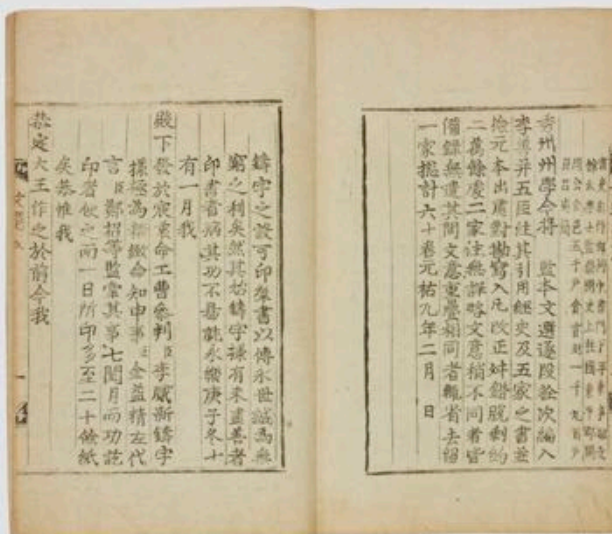 秀州州學今將 監本文選逐段詮次編入
李善并五臣注其引用經史及五家之書並
檢元本出處對勘寫入凡改正舛錯脫剩約
二萬餘處二家注無詳略文意稍不同者皆
備錄無遺其間文意重疊相同者輒省去留
一家總計六十卷元祐九年二月 日
鑄字之設可印羣書以傳永世誠爲無
窮之利矣然其始鑄字樣有未盡善者
印書者病其功不易就永樂庚子冬十
有一月我
殿下發於宸衷命工曹參判臣李蕆新鑄字
樣極爲精緻命知申事臣金益精左代
言臣鄭招等監掌其事七閱月而功訖
印者便之而一日所印多至二十餘紙
矣恭惟我
恭定大王作之於前今我